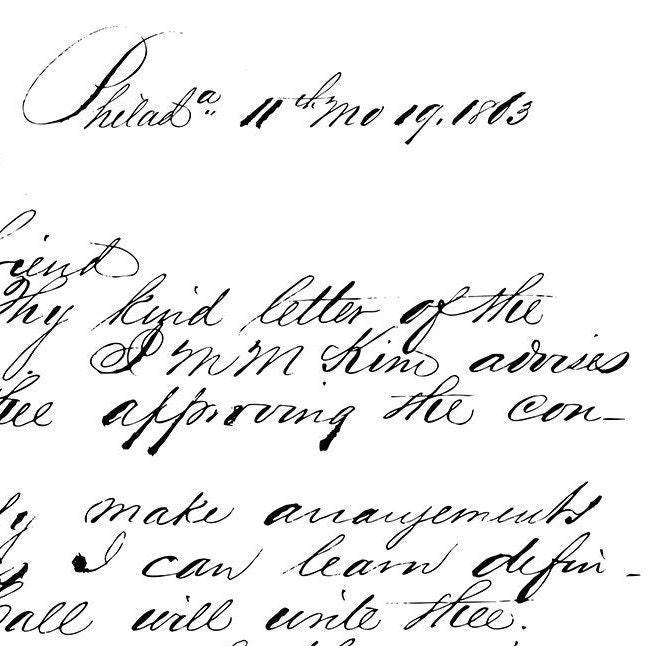 Philadᵃ 11th Mo 19. 1863
friend
Thy kind letter of the
J M M Kim advises
thee approving the con-
ly make arrangements
I can learn defin-
shall will write thee.